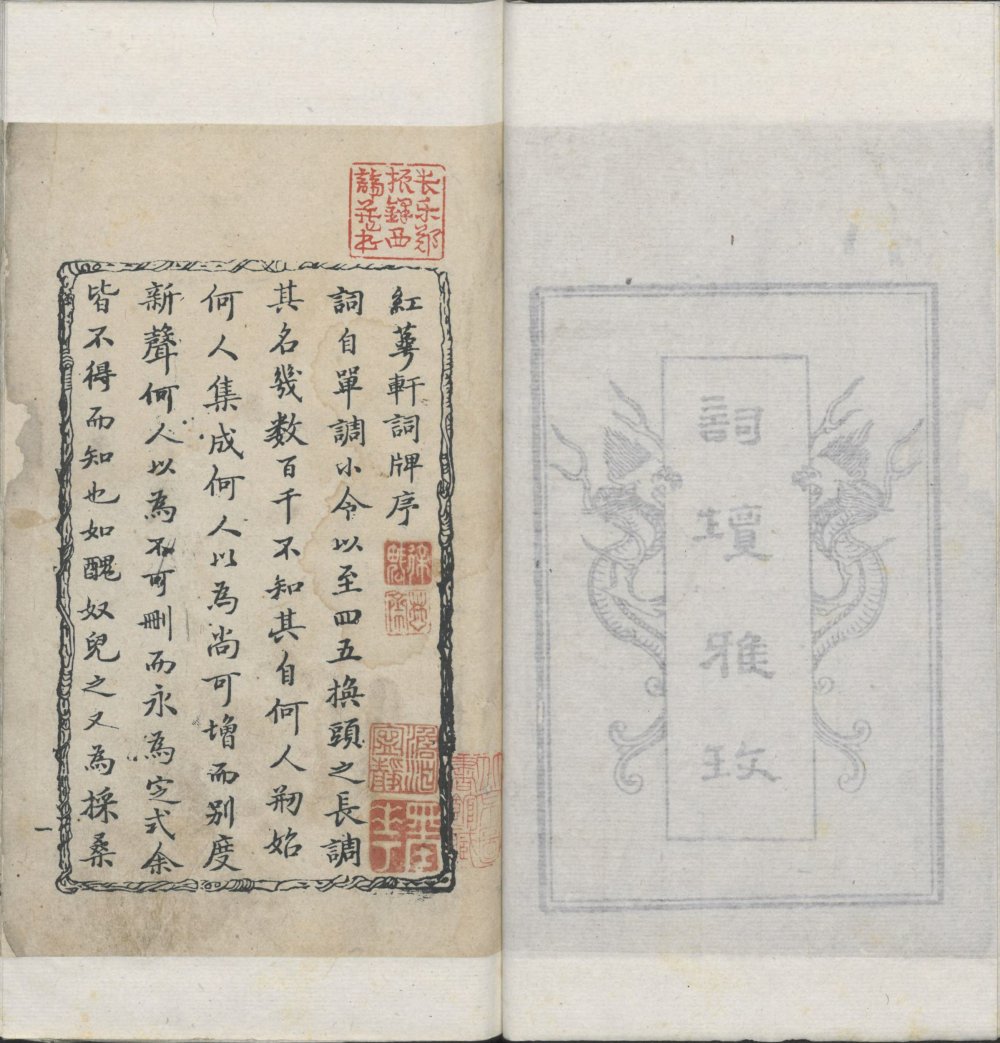 詞壇雅玫
紅蕚軒詞牌序
詞自單調小令以至四五換頭之長調
其名幾数百千不知其自何人刱始
何人集成何人以為尚可增而别度
新聲何人以為不可刪而永為定式余
皆不得而知也如醜奴兒之又為採桑
一
長樂鄭
振鐸西
諦藏書